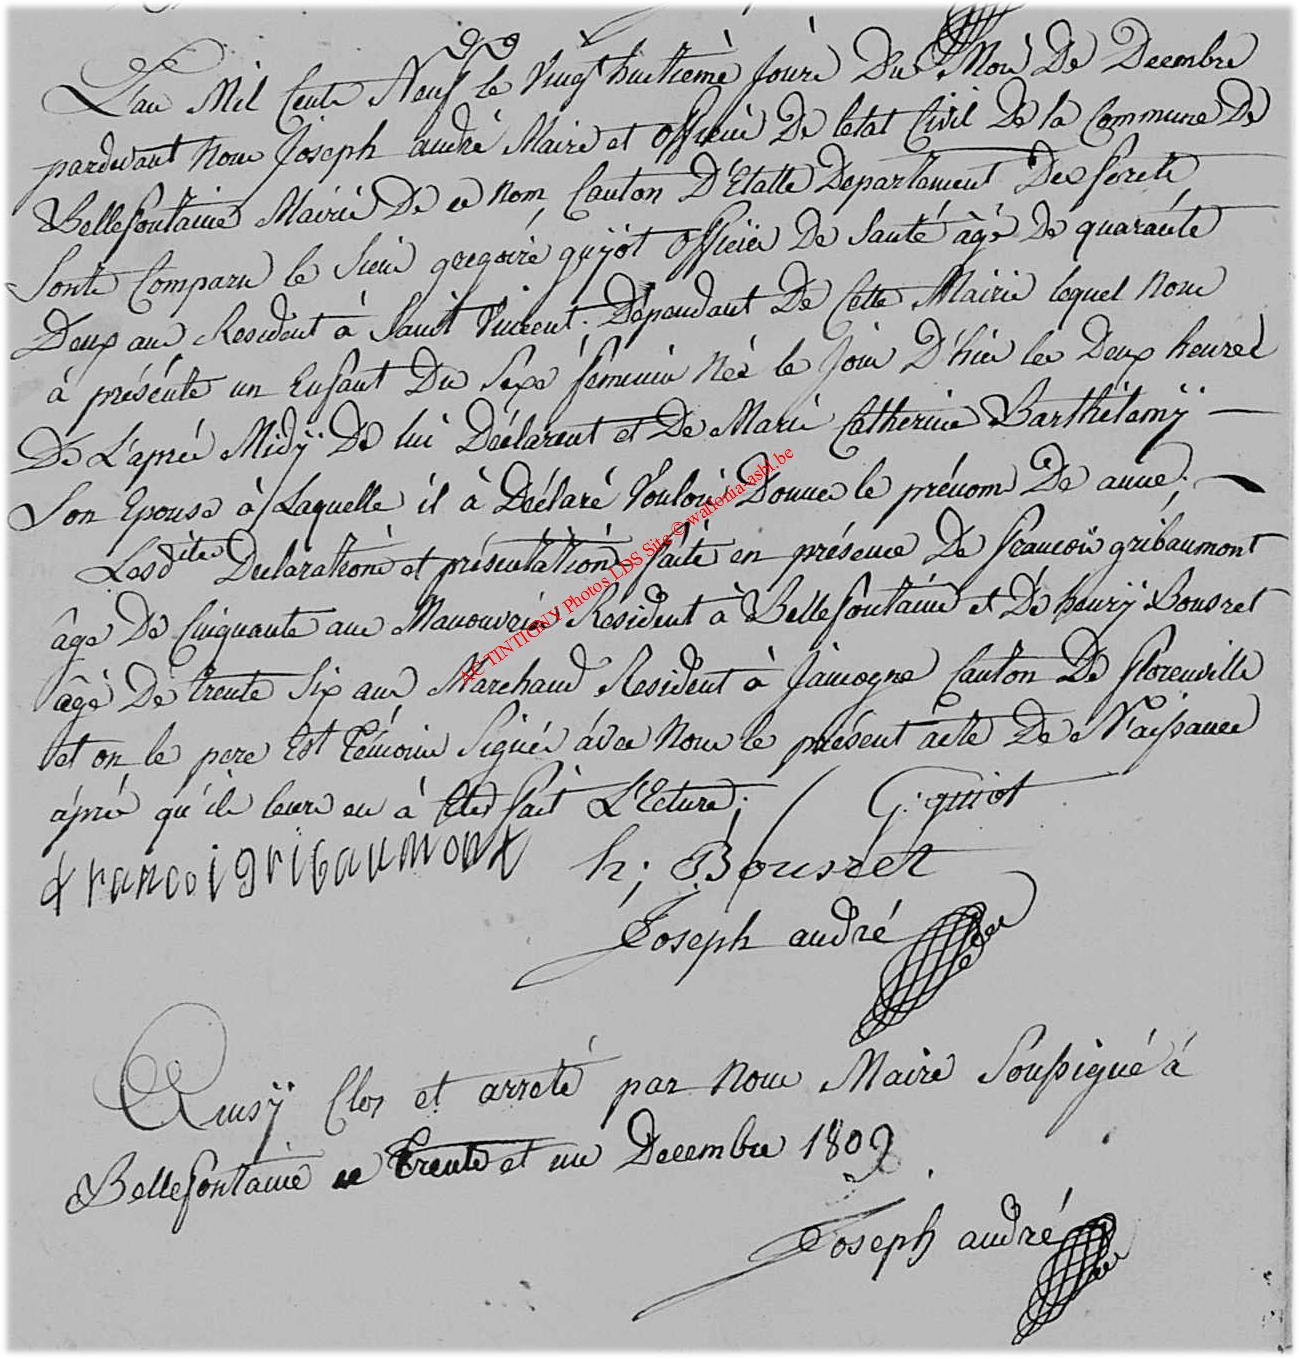 L'an Mil Cent Neuf le Vingt huitieme Jour Du Moi De Decembre
pardevant Nous Joseph andré Maire et officier De letat Civil De la Commune De
Bellefontaine Mairie De ce nom, Canton D'Etalle Departement Des forets,
Sont Comparu le Sieur gregoire guijot officier De Santé âgé De quarante
Deux ans Resident à Saint Vincent. Dépendant De Cette Mairie lequel nous
à présenté un Enfant Du Sexe féminin Née le Jour D'hier les Deux heures
De L'aprés Midÿ De lui Déclarent et De Marie Catherine Barthélemÿ —
Son Epouse à Laquelle il à Déclaré Vouloir Donner le prénom De anne; —
Lesdites Declarations et présentations faite en présence De françois gribaumont
âgé De Cinquante ans Manouvrier Résident à Bellefontaine et De henrÿ Bousret
âgé De trente Six ans Marchand Resident à Jamogne Canton De florenville
et on le pere Est témoins Signés avec Nous le présent acte De Naissance
áprés qu'il leurs en à été fait L'Ecture;
G: guiot
francoi gribaumont
h; Bousret
Joseph andré
Ainsÿ Clos et arreté par nous Maire Soussigné à
Bellefontaine ce trente et un Decembre 1809
Joseph andré
AC TINTIGNY Photos LDS Site © wallonia-asbl.be